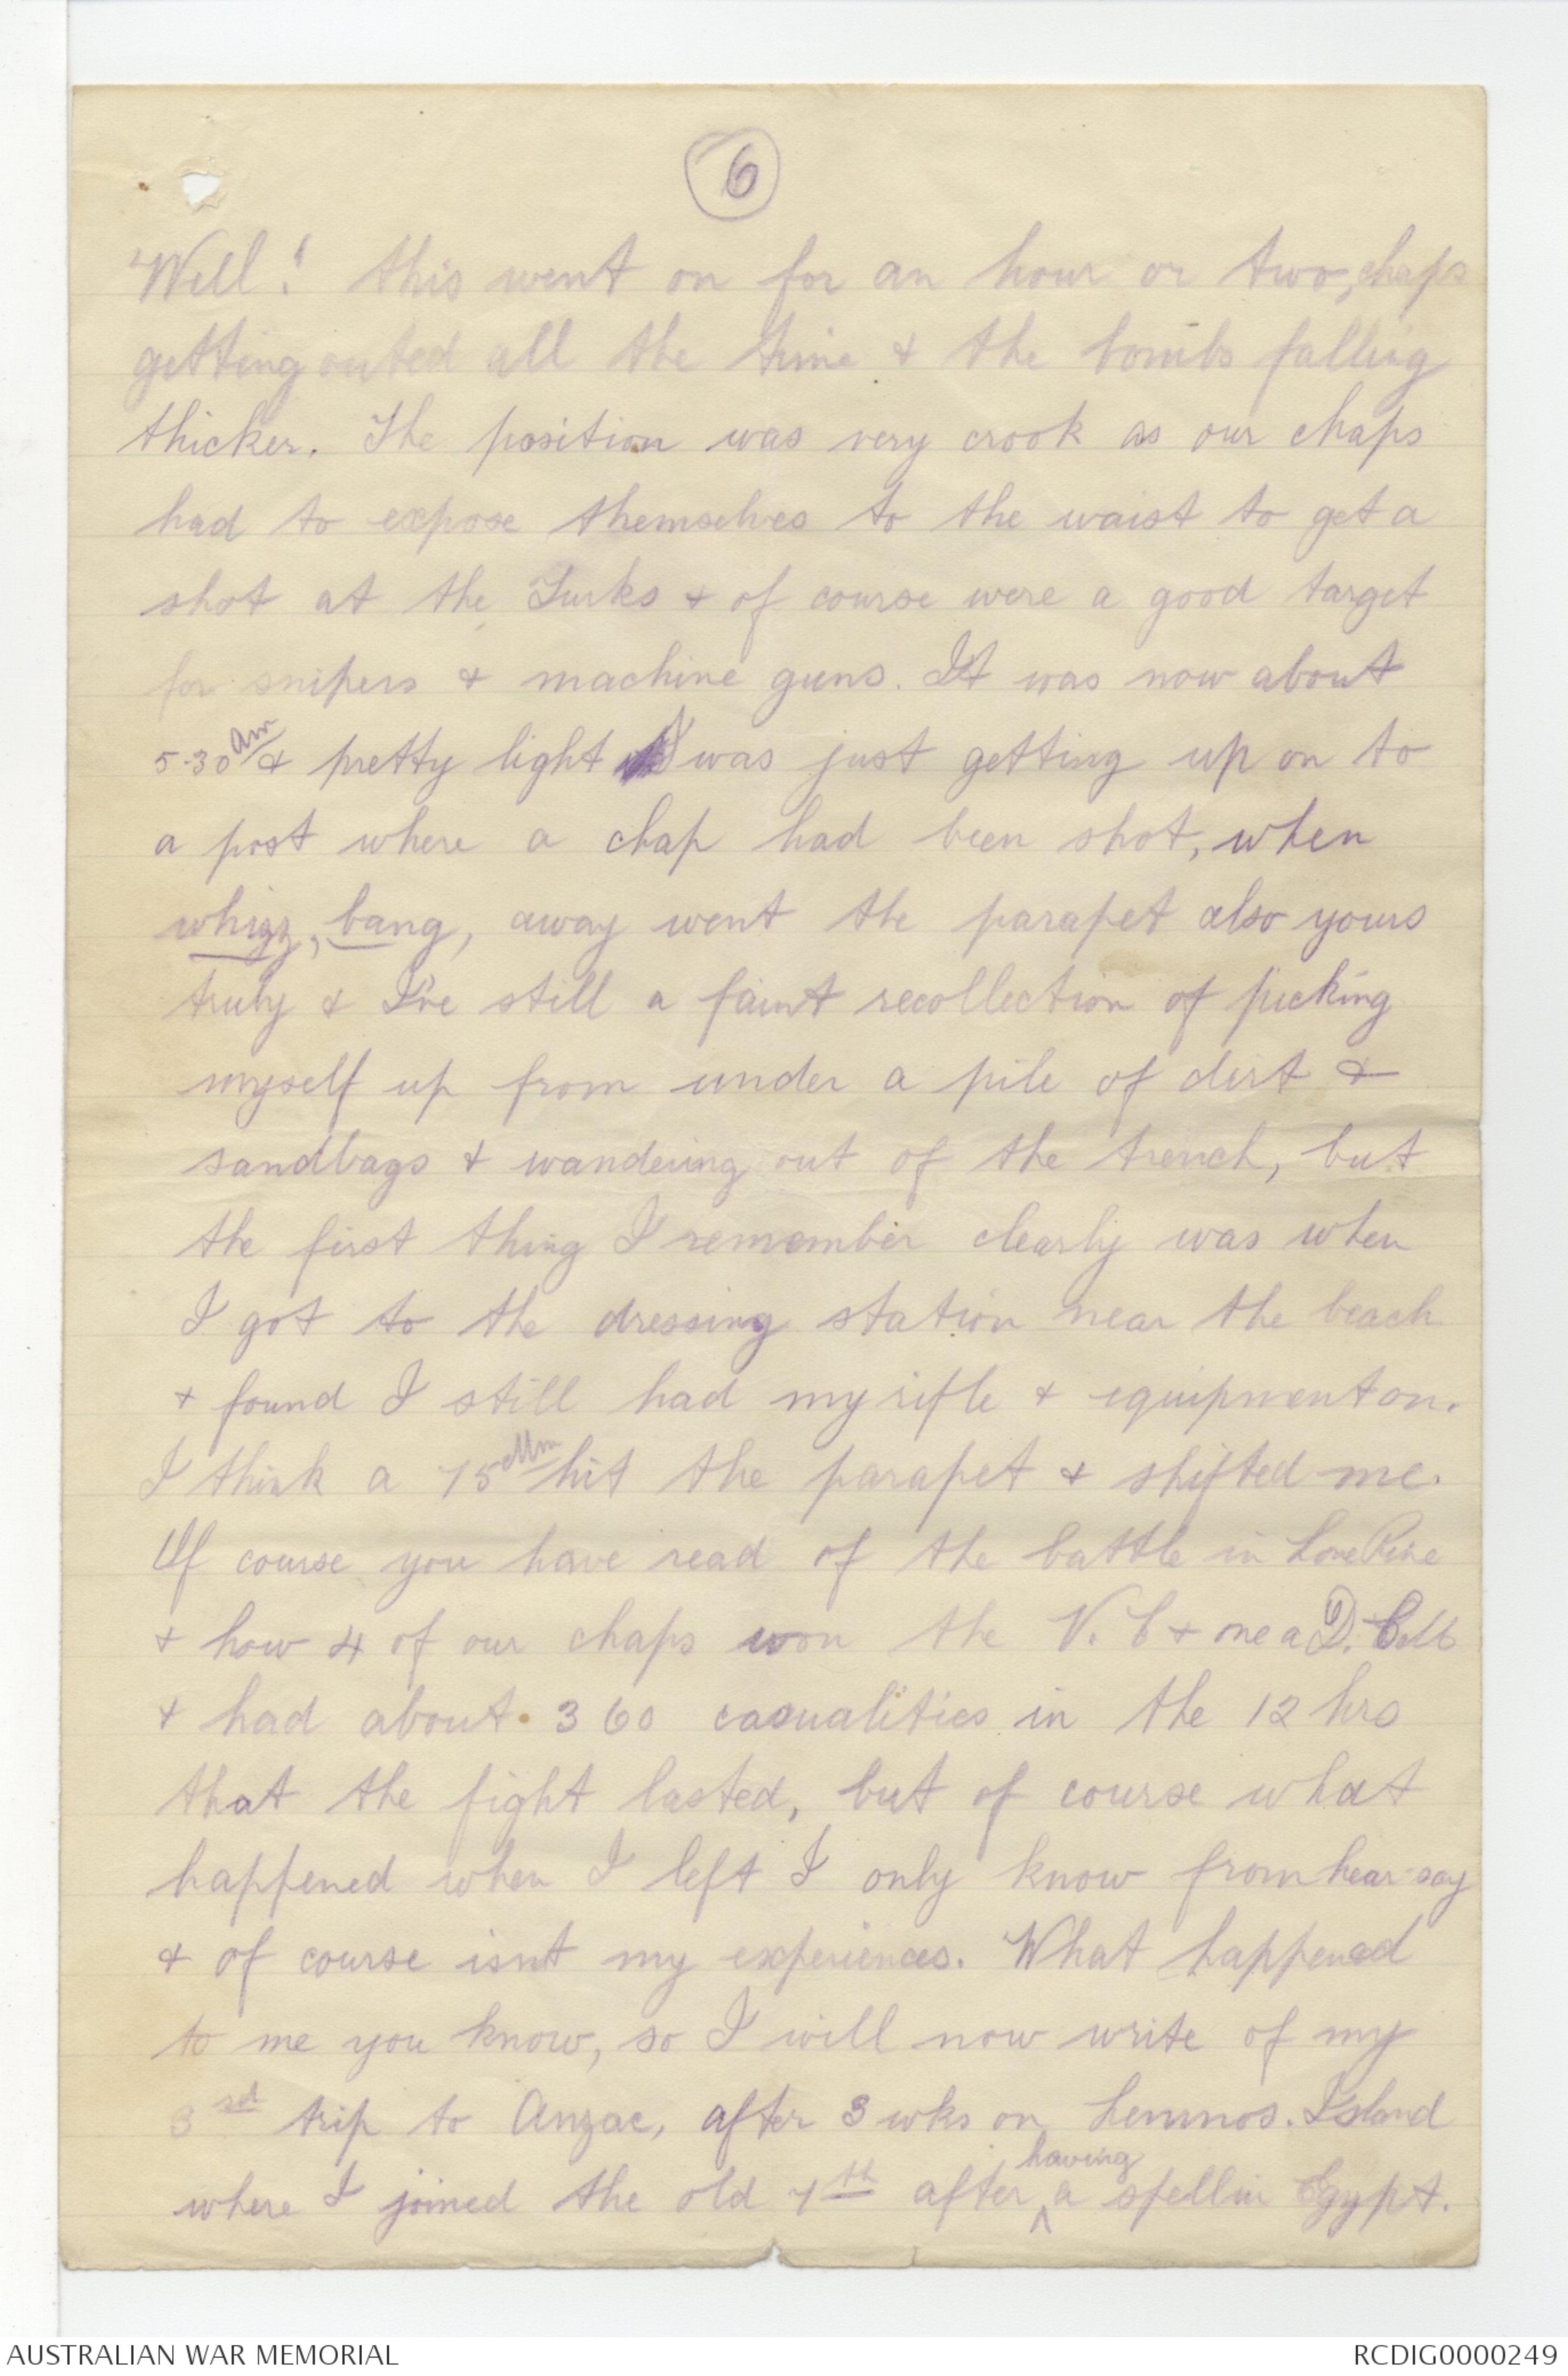 6
Well! this went on for an hour or two, chaps
getting outed all the time & the bombs falling
thicker. The position was very crook as our chaps
had to expose themselves to the waist to get a
shot at the Turks & of course were a good target
for snipers & machine guns. It was now about
5-30 am & pretty light I was just getting up on to
a post where a chap had been shot, when
whizz, bang, away went the parapet also yours
truly & I've still a faint recollection of picking
myself up from under a pile of dirt &
sandbags & wandering out of the trench, but
the first thing I remember clearly was when
I got to the dressing station near the beach
& found I still had my rifle & equipment on.
I think a 75 Mm hit the parapet & shifted me.
Of course you have read of the battle in Lone Pine
& how 4 of our chaps won the V.C & one a D.C.M
& had about 360 casualities in the 12 hrs
that the fight lasted, but of course what
happened when I left I only know from hear-say
& of course isnt my experiences. What happened
to me you know, so I will now write of my
3rd trip to Anzac, after 3 wks on Lemnos. Island
where I joined the old 7th after having a spell in Egypt.
AUSTRALIAN WAR MEMORIAL
RCDIG0000249